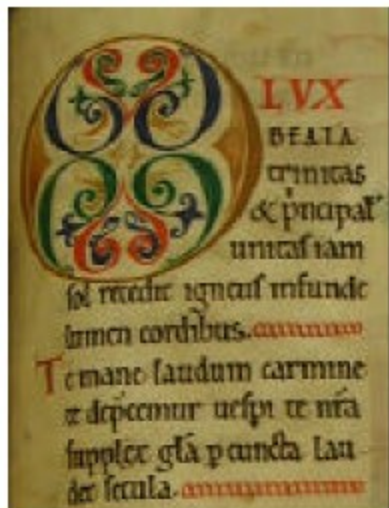 O LVX
BEATA
trinitas
& p̄ncipal'
unitas iam
sol recedit igneus infunde
lumen cordibus.
Te mane laudum carmine
te dep̄cemur uesp̄i te nr̄a
supplex gl̄a p̱ cuncta lau-
det secula.